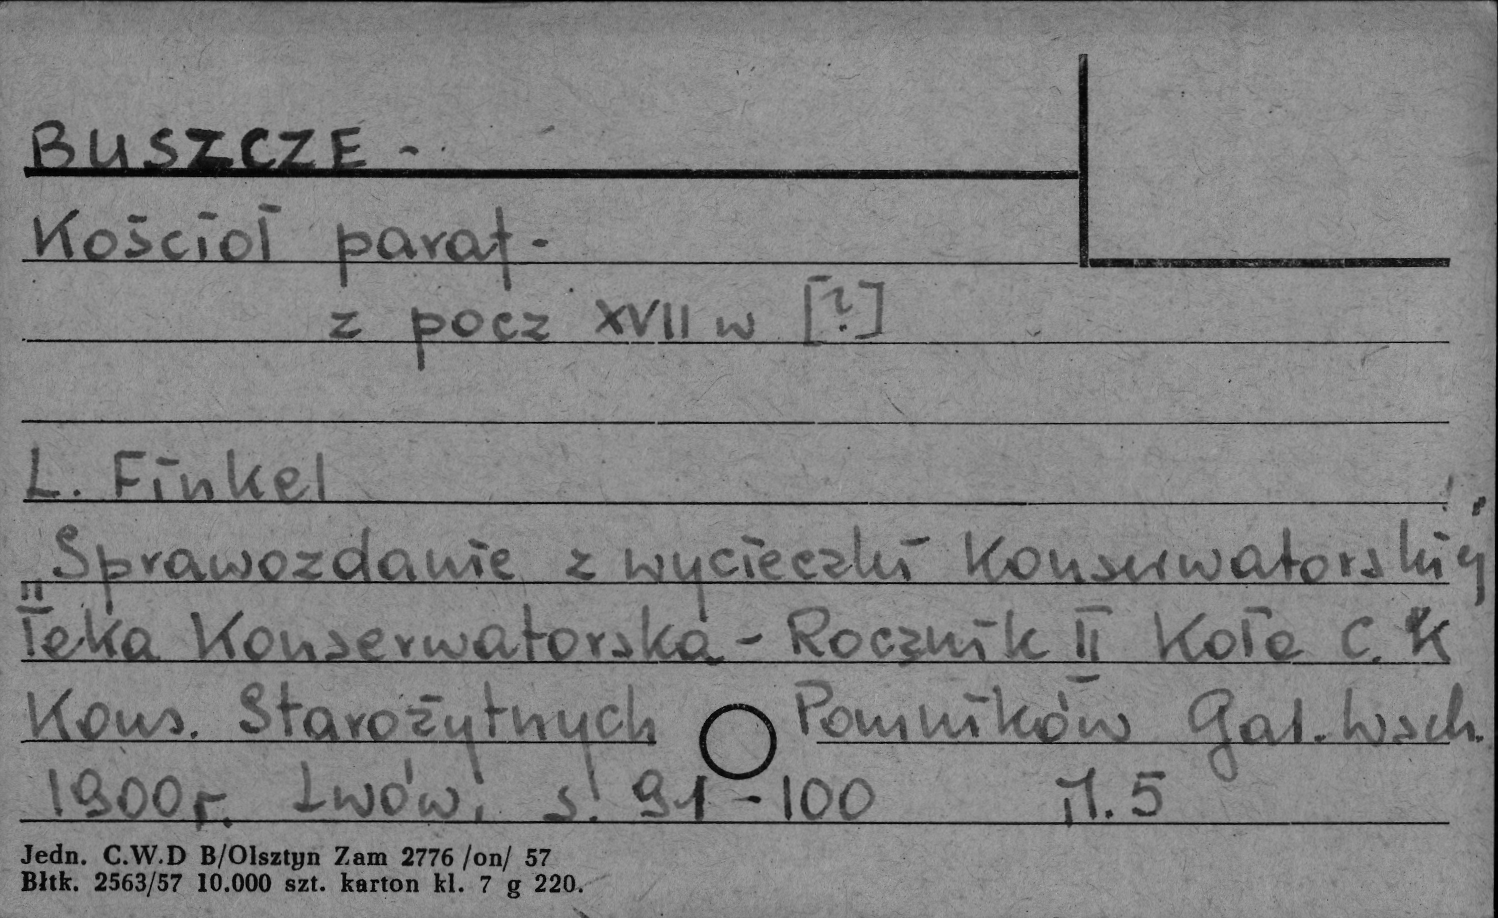 BUSZCZE -
Kościoł paraf-
z pocz XVII w [?]
L. Finkel
„Sprawozdanie z wycieczki Konserwatorskiej"
Teka Konserwatorska - Rocznik II Koła C. K
Kons. Starożytnych Pomników Gal. Wsch.
1900r. Lwów, s. 91-100 il. 5
Jedn. C.W.D B/Olsztyn Zam 2776 /on/ 57
Błtk. 2563/57 10.000 szt. karton kl. 7 g 220.